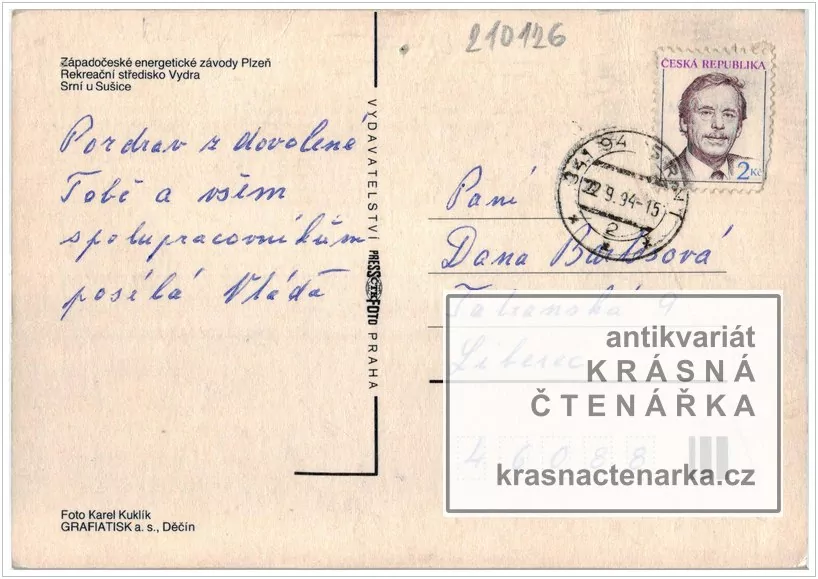 210126
Západočeské energetické závody Plzeň
Rekreační středisko Vydra
Srní u Sušice
ČESKÁ REPUBLIKA
2 Kč
341 94 SRNÍ 2
22.9.94-15
VYDAVATELSTVÍ PRESSČTKFOTO PRAHA
Pozdrav z dovolené
Tobě a všem
spolupracovníkům
posílá Vláďa
Paní
Dana Bartošová
Tatranská 9
Liberec
46088
antikvariát
KRÁSNÁ
ČTENÁŘKA
krasnactenarka.cz
Foto Karel Kuklík
GRAFIATISK a. s., Děčín